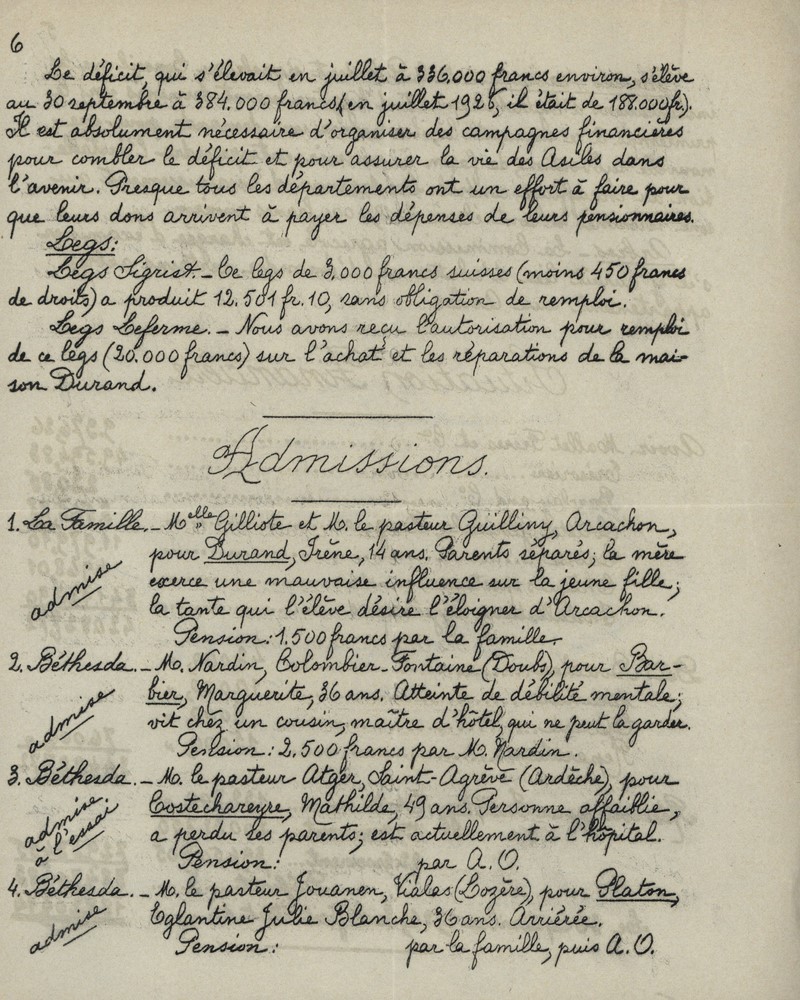 6
Le déficit, qui s'élevait en juillet à 336.000 francs environ, s'élève
au 30 septembre à 384.000 francs (en juillet 1926, il était de 188.000 fr.).
Il est absolument nécessaire d'organiser des campagnes financières
pour combler le déficit et pour assurer la vie des Asiles dans
l'avenir. Presque tous les départements ont un effort à faire pour
que leurs dons arrivent à payer les dépenses de leurs pensionnaires.
Legs:
Legs Sigrist. - Ce legs de 3.000 francs suisses (moins 450 francs
de droits) a produit 12.501 fr. 10, sans obligation de remploi.
Legs Leferme. - Nous avons reçu l'autorisation pour remploi
de ce legs (20.000 francs) sur l'achat et les réparations de la mai-
son Durand.
Admissions.
1. La Famille. - Melle Gilliote et M. le pasteur Guilliny, Arcachon,
pour Durand, Irène, 14 ans. Parents séparés; la mère
exerce une mauvaise influence sur la jeune fille;
admise
la tante qui l'élève désire l'éloigner d'Arcachon.
Pension: 1.500 francs par la famille.
2. Béthesda. - M. Nardin, Colombier-Fontaine (Doubs), pour Bar-
bier, Marguerite, 36 ans. Atteinte de débilité mentale;
admise
vit chez un cousin, maître d'hôtel, qui ne peut la garder.
Pension: 2.500 francs par M. Nardin.
3. Béthesda. - M. le pasteur Atger, Saint-Agrève (Ardèche), pour
Costechareyre, Mathilde, 49 ans. Personne affaiblie,
admise
à l'essai
a perdu ses parents; est actuellement à l'hôpital.
Pension: par A. O.
4. Béthesda. - M. le pasteur Jouanen, Vialas (Lozère), pour Platon,
Eglantine Julie Blanche, 36 ans. Arriérée.
admise
Pension: par la famille, puis A. O.